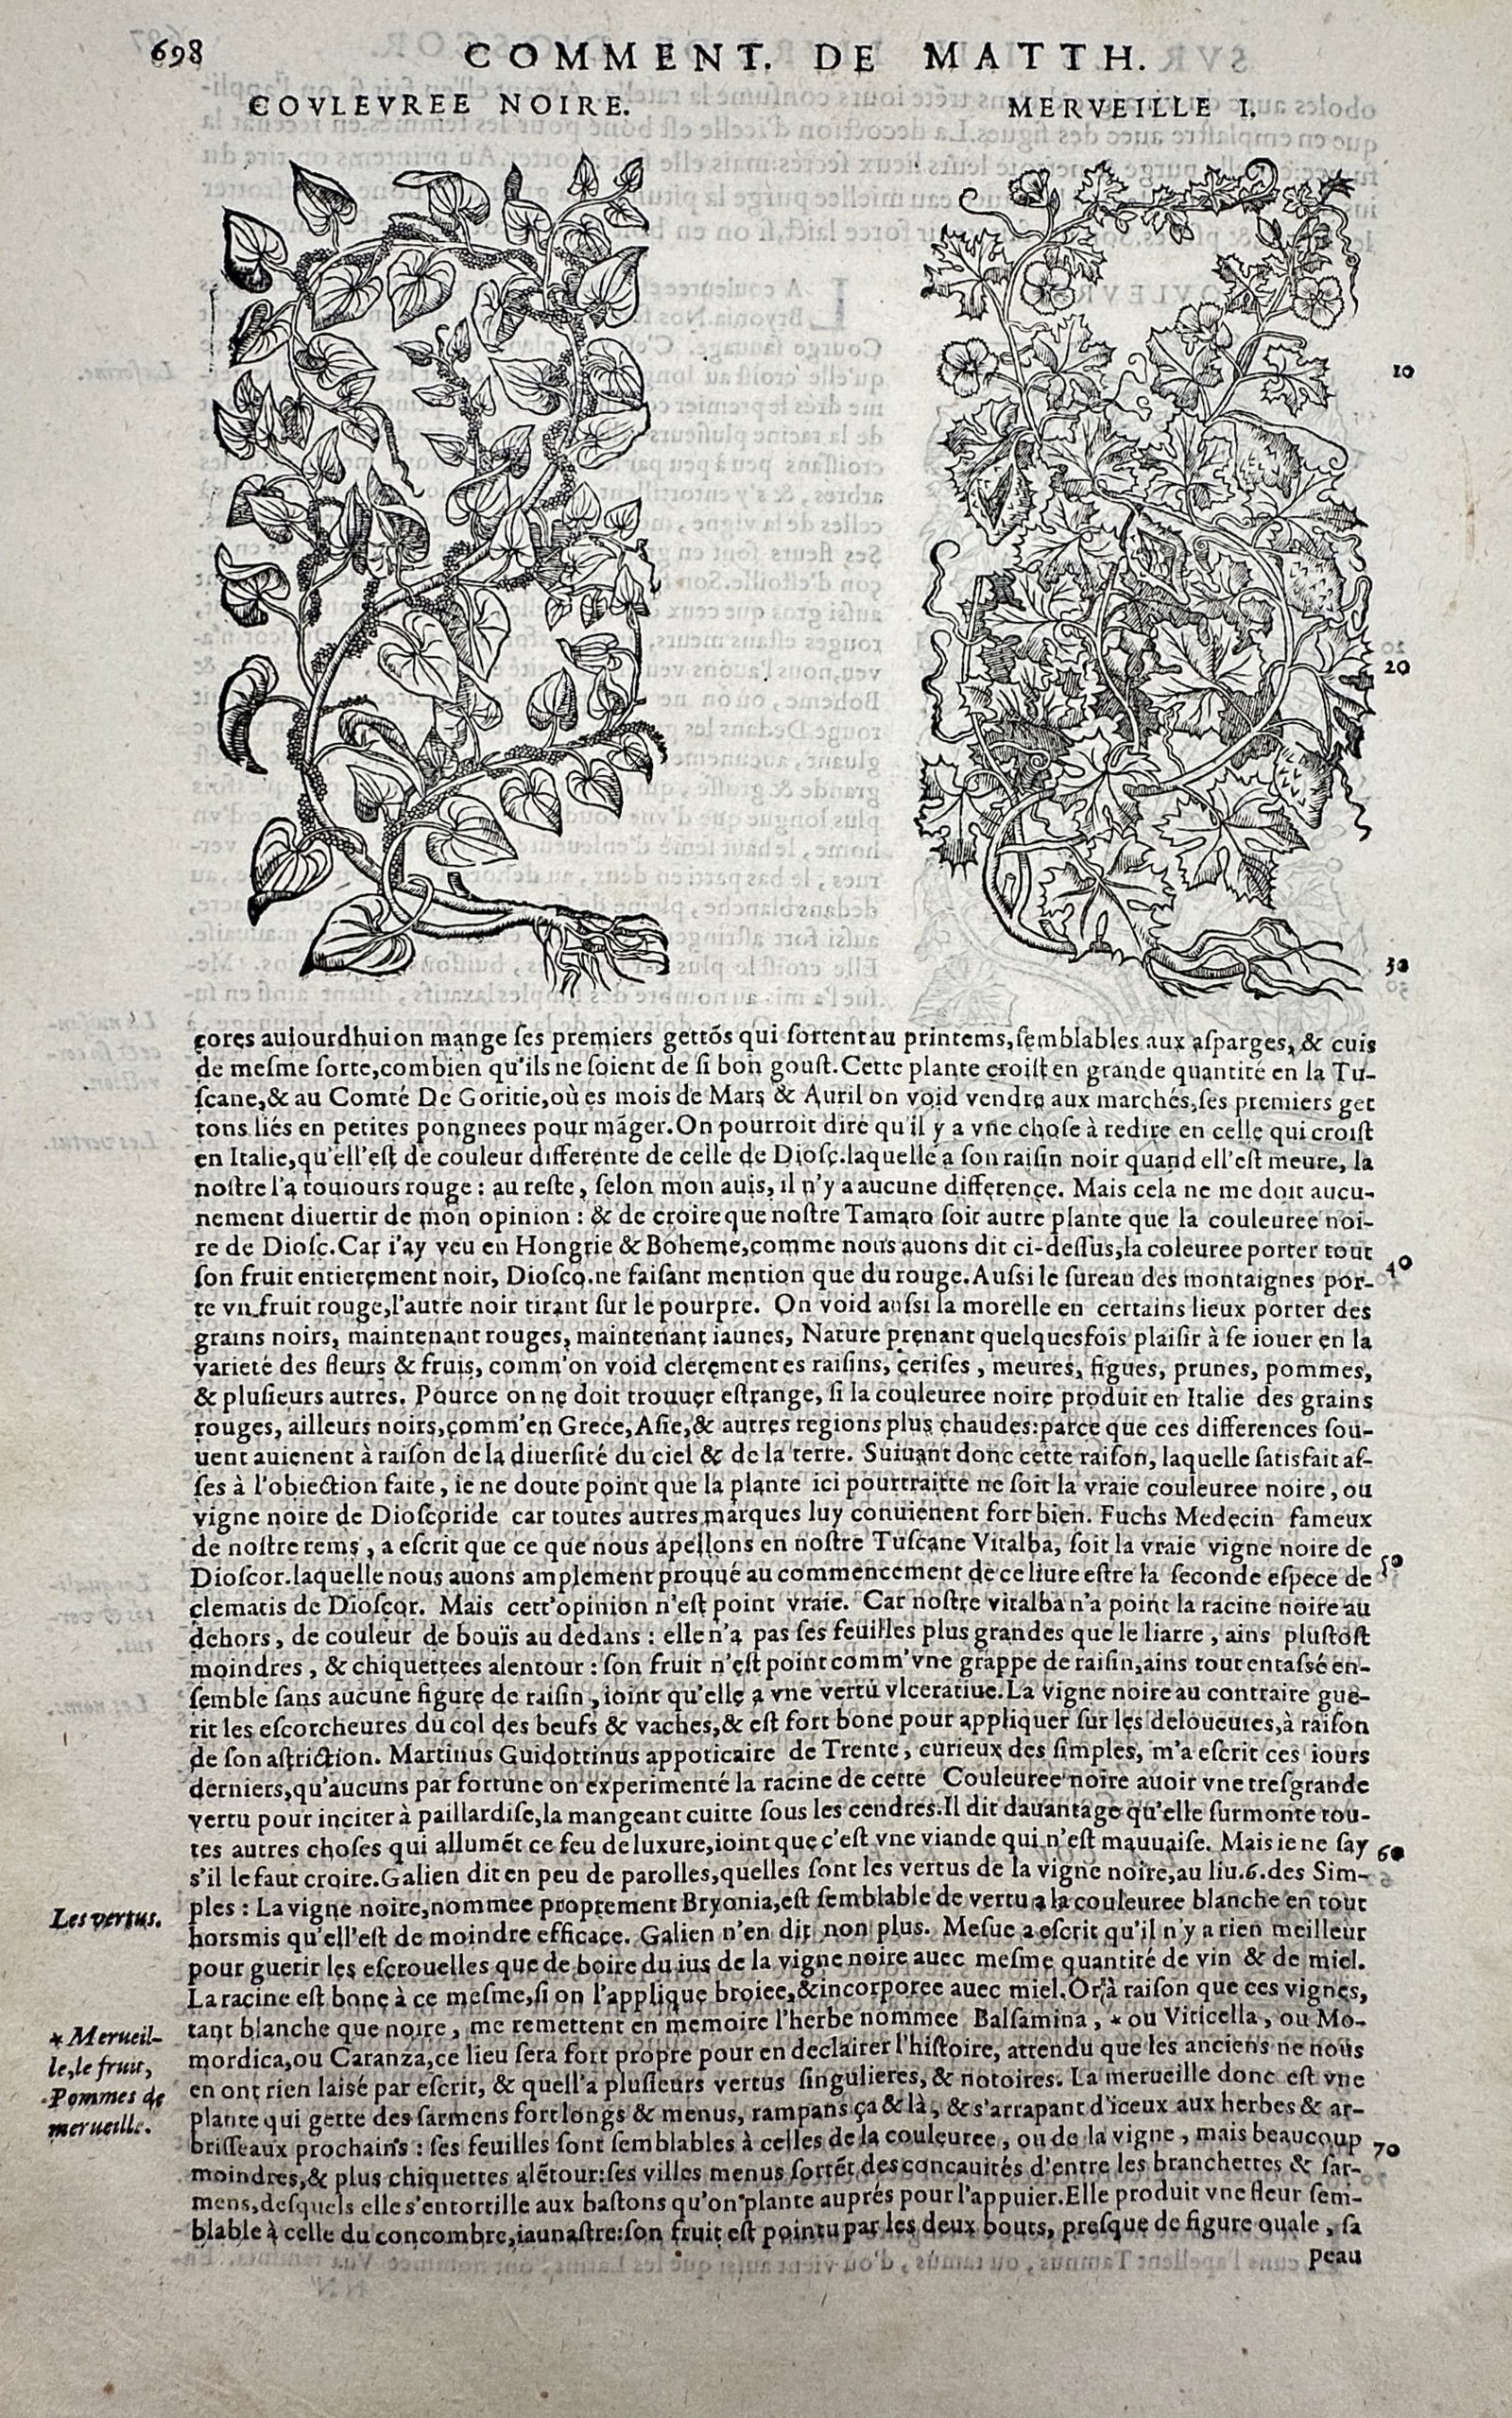 698 COMMENT. DE MATTH.
COVLEVREE NOIRE. MERVEILLE I.
10
20
30
cores auiourdhui on mange ſes premiers gettõs qui ſortent au printems, ſemblables aux aſparges, & cuis
de meſme ſorte, combien qu'ils ne ſoient de ſi bon gouſt. Cette plante croiſt en grande quantité en la Tu-
ſcane, & au Comté De Goritie, où es mois de Mars & Auril on void vendre aux marchés, ſes premiers get
tons liés en petites pongnees pour mãger. On pourroit dire qu'il y a vne choſe à redire en celle qui croiſt
en Italie, qu'ell'eſt de couleur differente de celle de Dioſc. laquelle a ſon raiſin noir quand ell'eſt meure, la
noſtre l'a touiours rouge : au reſte, ſelon mon auis, il n'y a aucune difference. Mais cela ne me doit aucu-
nement diuertir de mon opinion : & de croire que noſtre Tamaro ſoit autre plante que la couleuree noi-
re de Dioſc. Car i'ay veu en Hongrie & Boheme, comme nous auons dit ci-deſſus, la coleuree porter tout
40
ſon fruit entierement noir, Dioſco. ne faiſant mention que du rouge. Auſſi le ſureau des montaignes por-
te vn fruit rouge, l'autre noir tirant ſur le pourpre. On void auſſi la morelle en certains lieux porter des
grains noirs, maintenant rouges, maintenant iaunes, Nature prenant quelquesfois plaiſir à ſe iouer en la
varieté des fleurs & fruis, comm'on void clerement es raiſins, ceriſes, meures, figues, prunes, pommes,
& pluſieurs autres. Pource on ne doit trouuer eſtrange, ſi la couleuree noire produit en Italie des grains
rouges, ailleurs noirs, comm'en Grece, Aſie, & autres regions plus chaudes: parce que ces differences ſou-
uent auienent à raiſon de la diuerſité du ciel & de la terre. Suiuant donc cette raiſon, laquelle ſatisfait aſ-
ſes à l'obiection faite, ie ne doute point que la plante ici pourtraitte ne ſoit la vraie couleuree noire, ou
vigne noire de Dioſcoride car toutes autres marques luy conuienent fort bien. Fuchs Medecin fameux
de noſtre tems, a eſcrit que ce que nous apellons en noſtre Tuſcane Vitalba, ſoit la vraie vigne noire de
50
Dioſcor. laquelle nous auons amplement prouué au commencement de ce liure eſtre la ſeconde eſpece de
clematis de Dioſcor. Mais cett'opinion n'eſt point vraie. Car noſtre vitalba n'a point la racine noire au
dehors, de couleur de bouïs au dedans : elle n'a pas ſes feuilles plus grandes que le liarre, ains pluſtoſt
moindres, & chiquettees alentour : ſon fruit n'eſt point comm'vne grappe de raiſin, ains tout entaſſé en-
ſemble ſans aucune figure de raiſin, ioint qu'elle a vne vertu vlceratiue. La vigne noire au contraire gue-
rit les eſcorcheures du col des beufs & vaches, & eſt fort bone pour appliquer ſur les deloueures, à raiſon
de ſon aſtriction. Martinus Guidottinus appoticaire de Trente, curieux des ſimples, m'a eſcrit ces iours
derniers, qu'aucuns par fortune on experimenté la racine de cette Couleuree noire auoir vne treſgrande
vertu pour inciter à paillardiſe, la mangeant cuitte ſous les cendres. Il dit dauantage qu'elle ſurmonte tou-
tes autres choſes qui allumẽt ce feu de luxure, ioint que c'eſt vne viande qui n'eſt mauuaiſe. Mais ie ne ſay
60
s'il le faut croire. Galien dit en peu de parolles, quelles ſont les vertus de la vigne noire, au liu. 6. des Sim-
ples : La vigne noire, nommee proprement Bryonia, eſt ſemblable de vertu a la couleuree blanche en tout
Les vertus.
horsmis qu'ell'eſt de moindre efficace. Galien n'en dit non plus. Meſue a eſcrit qu'il n'y a rien meilleur
pour guerir les eſcrouelles que de boire du ius de la vigne noire auec meſme quantité de vin & de miel.
La racine eſt bone à ce meſme, ſi on l'applique broiee, & incorporee auec miel. Or à raiſon que ces vignes,
tant blanche que noire, me remettent en memoire l'herbe nommee Balſamina, * ou Viticella, ou Mo-
* Merueil-
le, le fruit,
Pommes de
merueille.
mordica, ou Caranza, ce lieu ſera fort propre pour en declairer l'hiſtoire, attendu que les anciens ne nous
en ont rien laiſé par eſcrit, & quell'a pluſieurs vertus ſingulieres, & notoires. La merueille donc eſt vne
plante qui gette des ſarmens fort longs & menus, rampans ça & là, & s'arrapant d'iceux aux herbes & ar-
briſſeaux prochains : ſes feuilles ſont ſemblables à celles de la couleuree, ou de la vigne, mais beaucoup
70
moindres, & plus chiquettes alẽtour: ſes villes menus ſortẽt des concauités d'entre les branchettes & ſar-
mens, deſquels elle s'entortille aux baſtons qu'on plante auprés pour l'appuier. Elle produit vne fleur ſem-
blable à celle du concombre, iaunaſtre: ſon fruit eſt pointu par les deux bouts, preſque de figure ouale, ſa
peau